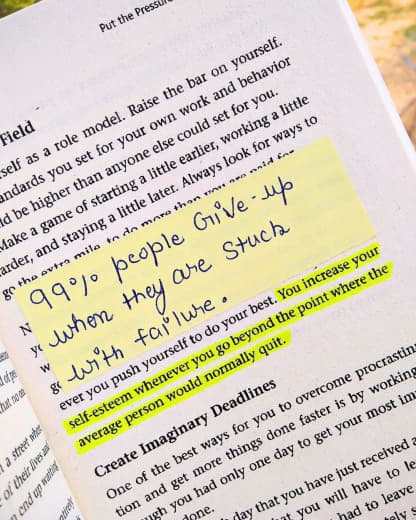 Put the Pressure
Field
self as a role model. Raise the bar on yourself.
andards you set for your own work and behavior
ld be higher than anyone else could set for you.
Make a game of starting a little earlier, working a little
arder, and staying a little later. Always look for ways to
go the extra mile, to do more than you are paid for
99% people Give-up
when they are stuck
with failure.
ever you push yourself to do your best. You increase your
self-esteem whenever you go beyond the point where the
average person would normally quit.
Create Imaginary Deadlines
One of the best ways for you to overcome procrastin
tion and get more things done faster is by working
ugh you had only one day to get your most im
done.
day that you have just received a
you will have to
had to leave
a street
of their lives
end up waiting